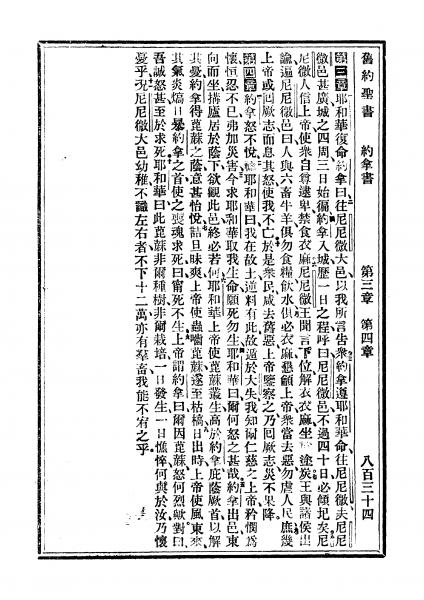 舊約聖書 約拿書 第三章 第四章 八百三十四
第三章 耶和華復命約拿曰、往尼尼微大邑、以我所言告衆、約拿遵耶和華命、往尼尼微、夫尼尼
微邑甚廣、城之四周、三日始徧、約拿入城、歷一日之程、呼曰、尼尼微邑、不過四十日、必傾圮矣、尼
尼微人信上帝、使衆自尊逮卑、禁食衣麻、尼尼微王聞言、下位解衣、衣麻、坐於塗炭、王與諸侯出
諭、遍尼尼微邑曰、人與六畜牛羊、俱勿食糧飲水、俱必衣麻、懇籲上帝、衆當去惡、勿虐人、庶幾
上帝或回厥志、而息其怒、使我不亡、於是衆民咸去舊惡、上帝鑒察之、乃回厥志、災不果降、
第四章 約拿怒不悅、禱耶和華曰、我在故土、逆料有此、故遁於大失、我知爾仁慈之上帝、矜憫爲
懷、恒忍不已、弗加災害、今求耶和華取我生命、願死勿生、耶和華曰、爾何怒之甚哉、約拿出邑東
向而坐、搆廬居於蔭下、欲觀此邑終必若何、耶和華上帝使萆蔴叢生、高於約拿、庇蔭厥首、以解
其憂、約拿得萆蔴之蔭、意甚怡悅、詰旦昧爽、上帝使蟲嚙萆蔴、遂至枯槁、日出時、上帝使風東來、
其氣炎熇、日暴約拿之首、使之喪魂求死、曰、寧死不生、上帝謂約拿曰、爾因萆蔴怒何烈歟、對曰、
吾誠怒甚、至於求死、耶和華曰、此萆蔴非爾種樹、非爾栽培、一日發生、一日憔悴、何與於汝、乃懷
憂乎、況尼尼微大邑、幼稚不識左右者、不下十二萬、亦有羣畜、我能不宥之乎。